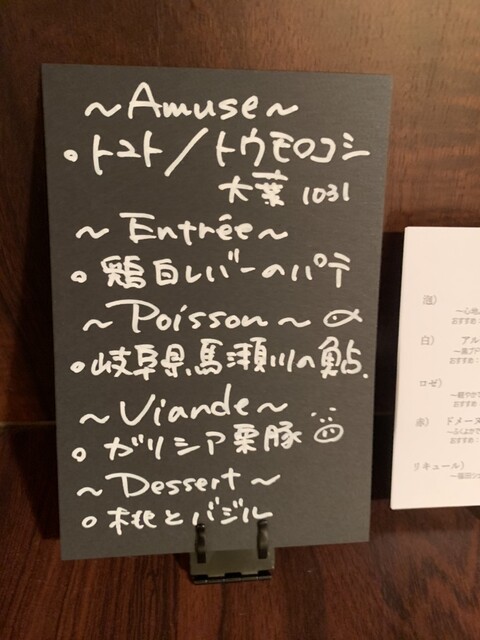 ~Amuse~
○トマト/トウモロコシ
大葉 1031
~Entrée~
○鶏白レバーのパテ
~Poisson~
○岐阜県馬瀬川の鮎.
~Viande~
○ガリシア栗豚
~Dessert~
○桃とバジル
泡)
~心地
おすすめ:
白) アル
おすすめ:
ロゼ)
~軽やかで
おすすめ:
赤) ドメーヌ
~ふくよかで
おすすめ:
リキュール)